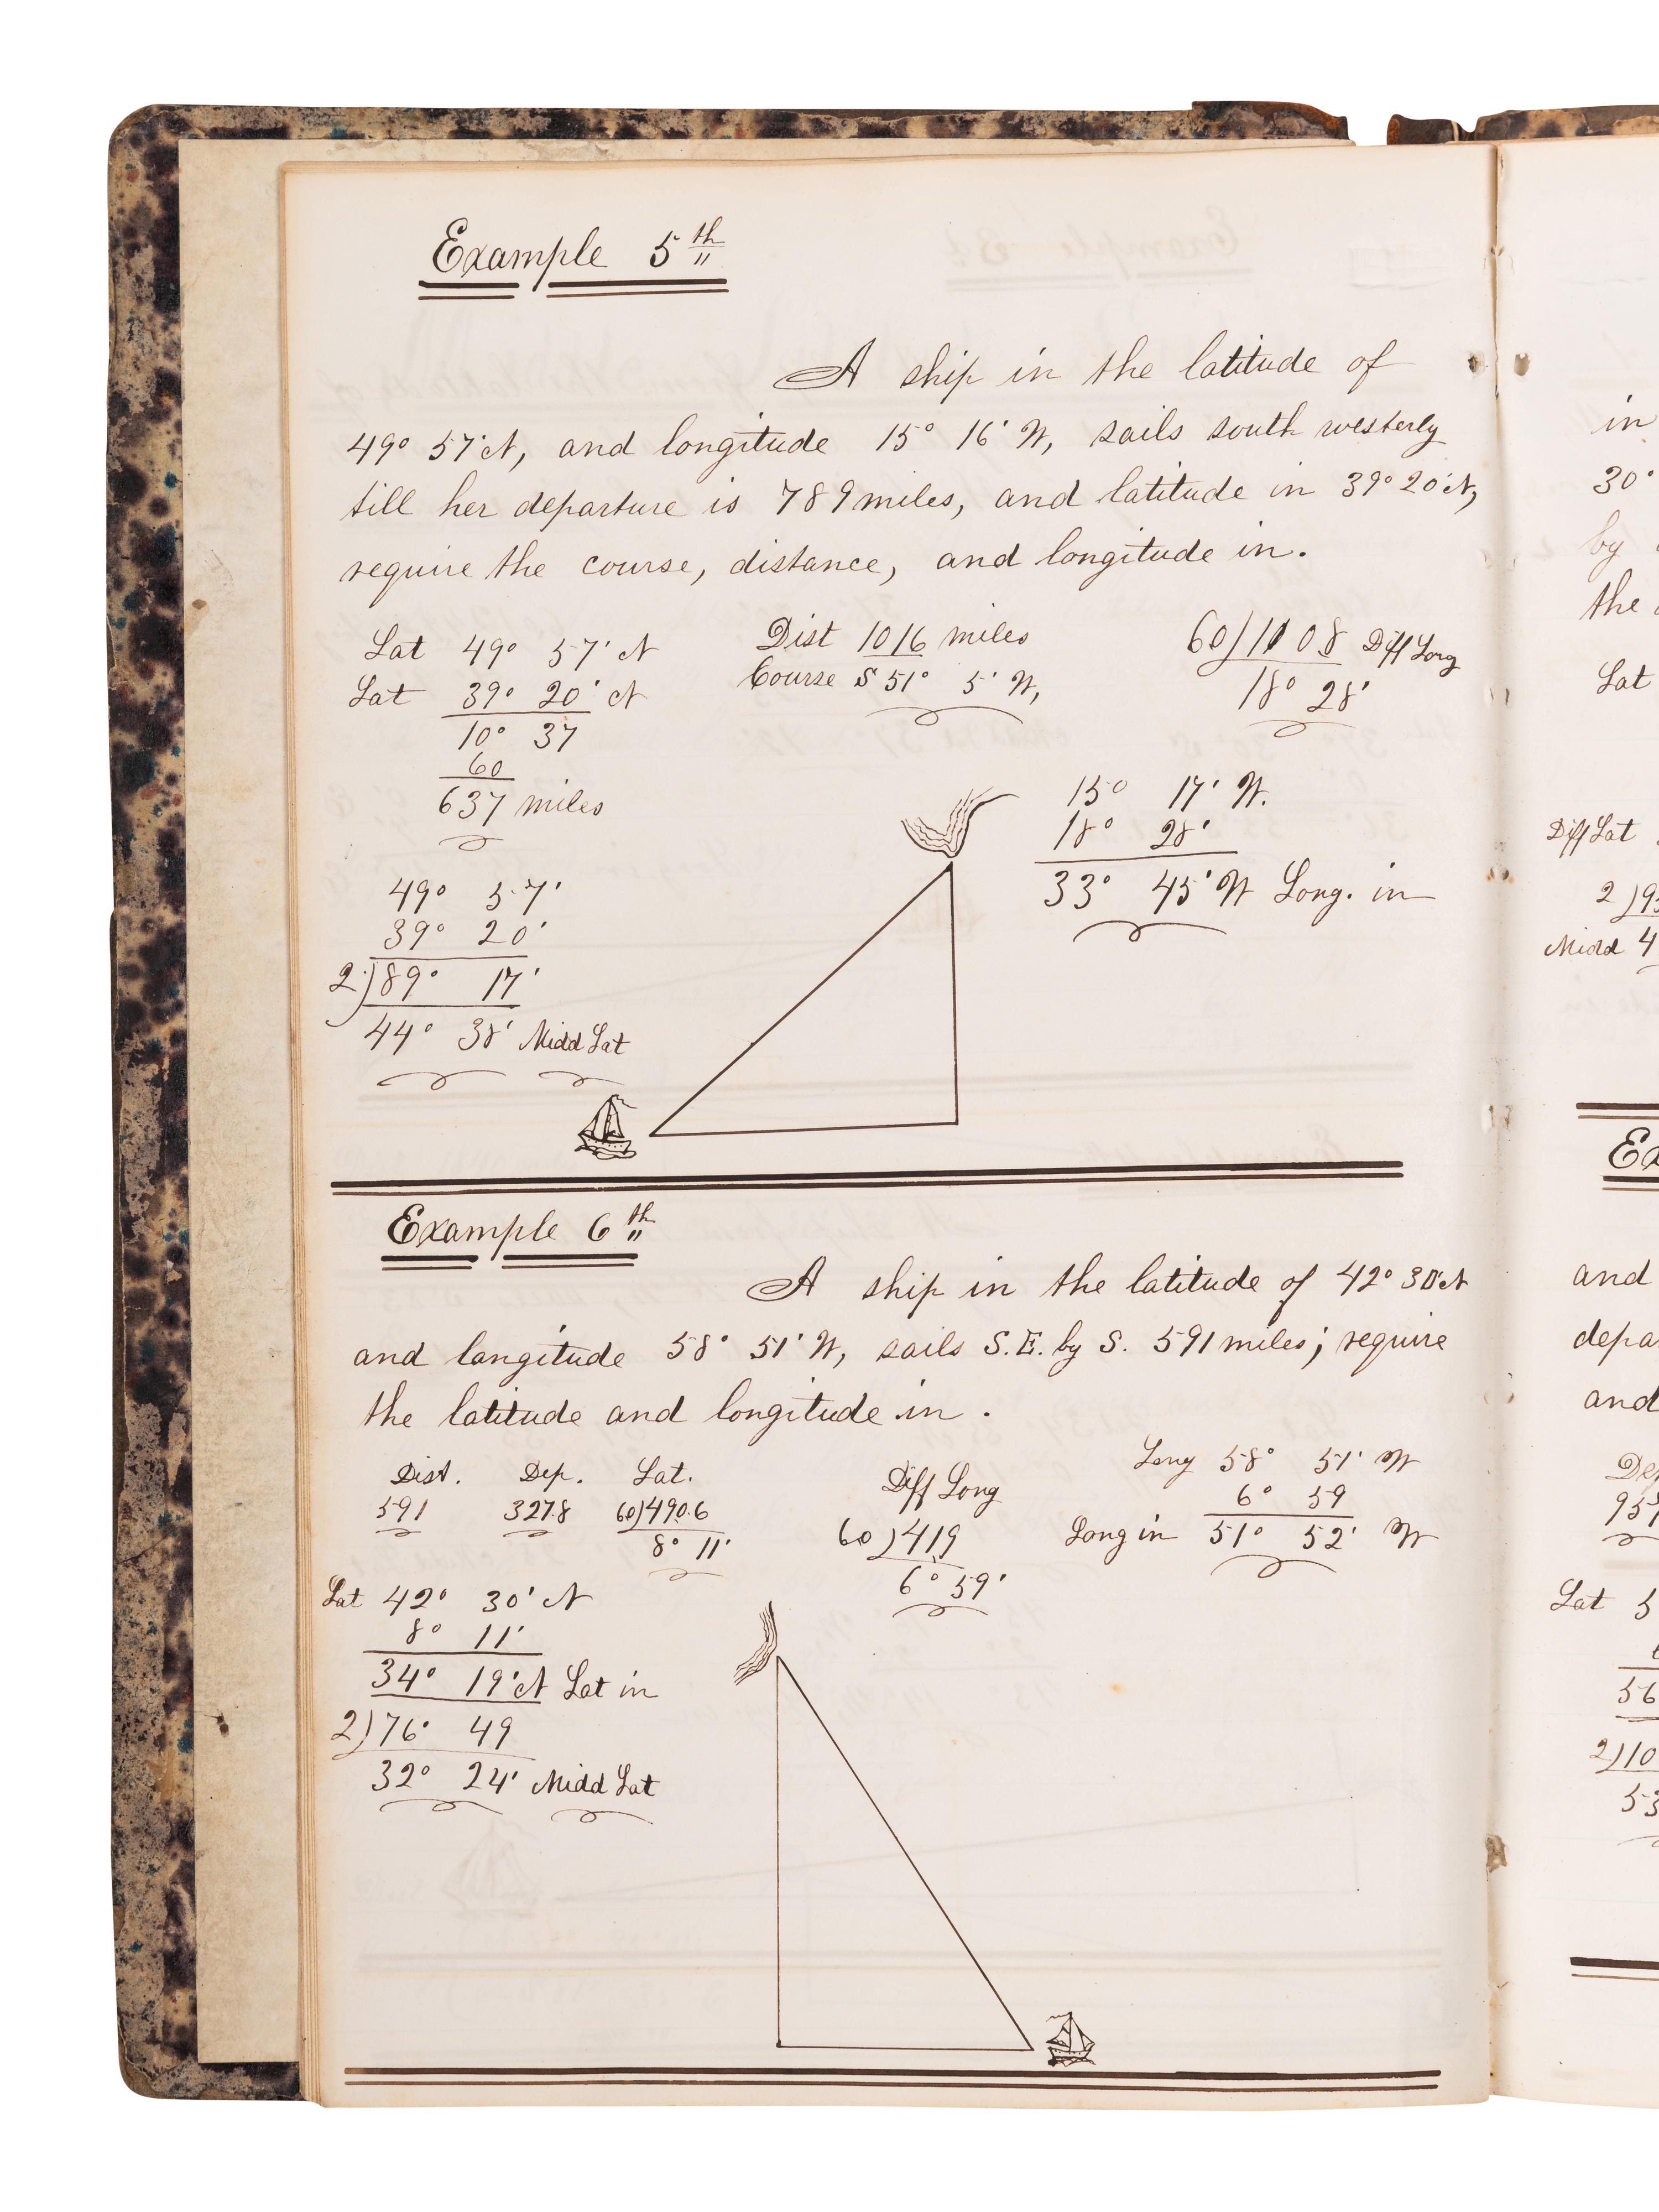 Example 5th
A ship in the latitude of
49° 57' N, and longitude 15° 16' W, sails south westerly
till her departure is 789 miles, and latitude in 39° 20' N,
require the course, distance, and longitude in.
Lat 49° 57' N
Lat 39° 20' N
10° 37
60
637 miles
49° 57'
39° 20'
2)89° 17'
44° 38' Midd Lat
Dist 1016 miles
Course S 51° 5' W,
60)1108 Diff Long
18° 28'
15° 17' W.
18° 28'
33° 45' W Long. in
Example 6th
A ship in the latitude of 42° 30' N
and langitude 58° 51' W, sails S.E. by S. 591 miles; require
the latitude and longitude in.
Dist. Dep. Lat.
591 327.8 60)490.6
8° 11'
Lat 42° 30' N
8° 11'
34° 19' N Lat in
2)76° 49
32° 24' Midd Lat
Diff Long
60)419
6° 59'
Long 58° 51' W
6° 59
Long in 51° 52' W
in
30°
by
the
Lat
Diff Lat
2)9
Midd 4
and
and
Lat 5
56
2)10
53